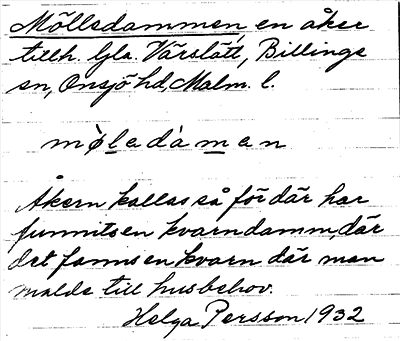 Mölledammen en åker
tillh. Gla. Värslätt, Billinge
sn, Onsjö hd, Malm. l.
mø̀ledàmen
Åkern kallas så för där har
funnits en kvarndamm, där
det fanns en kvarn där man
malde till husbehov.
Helga Persson 1932